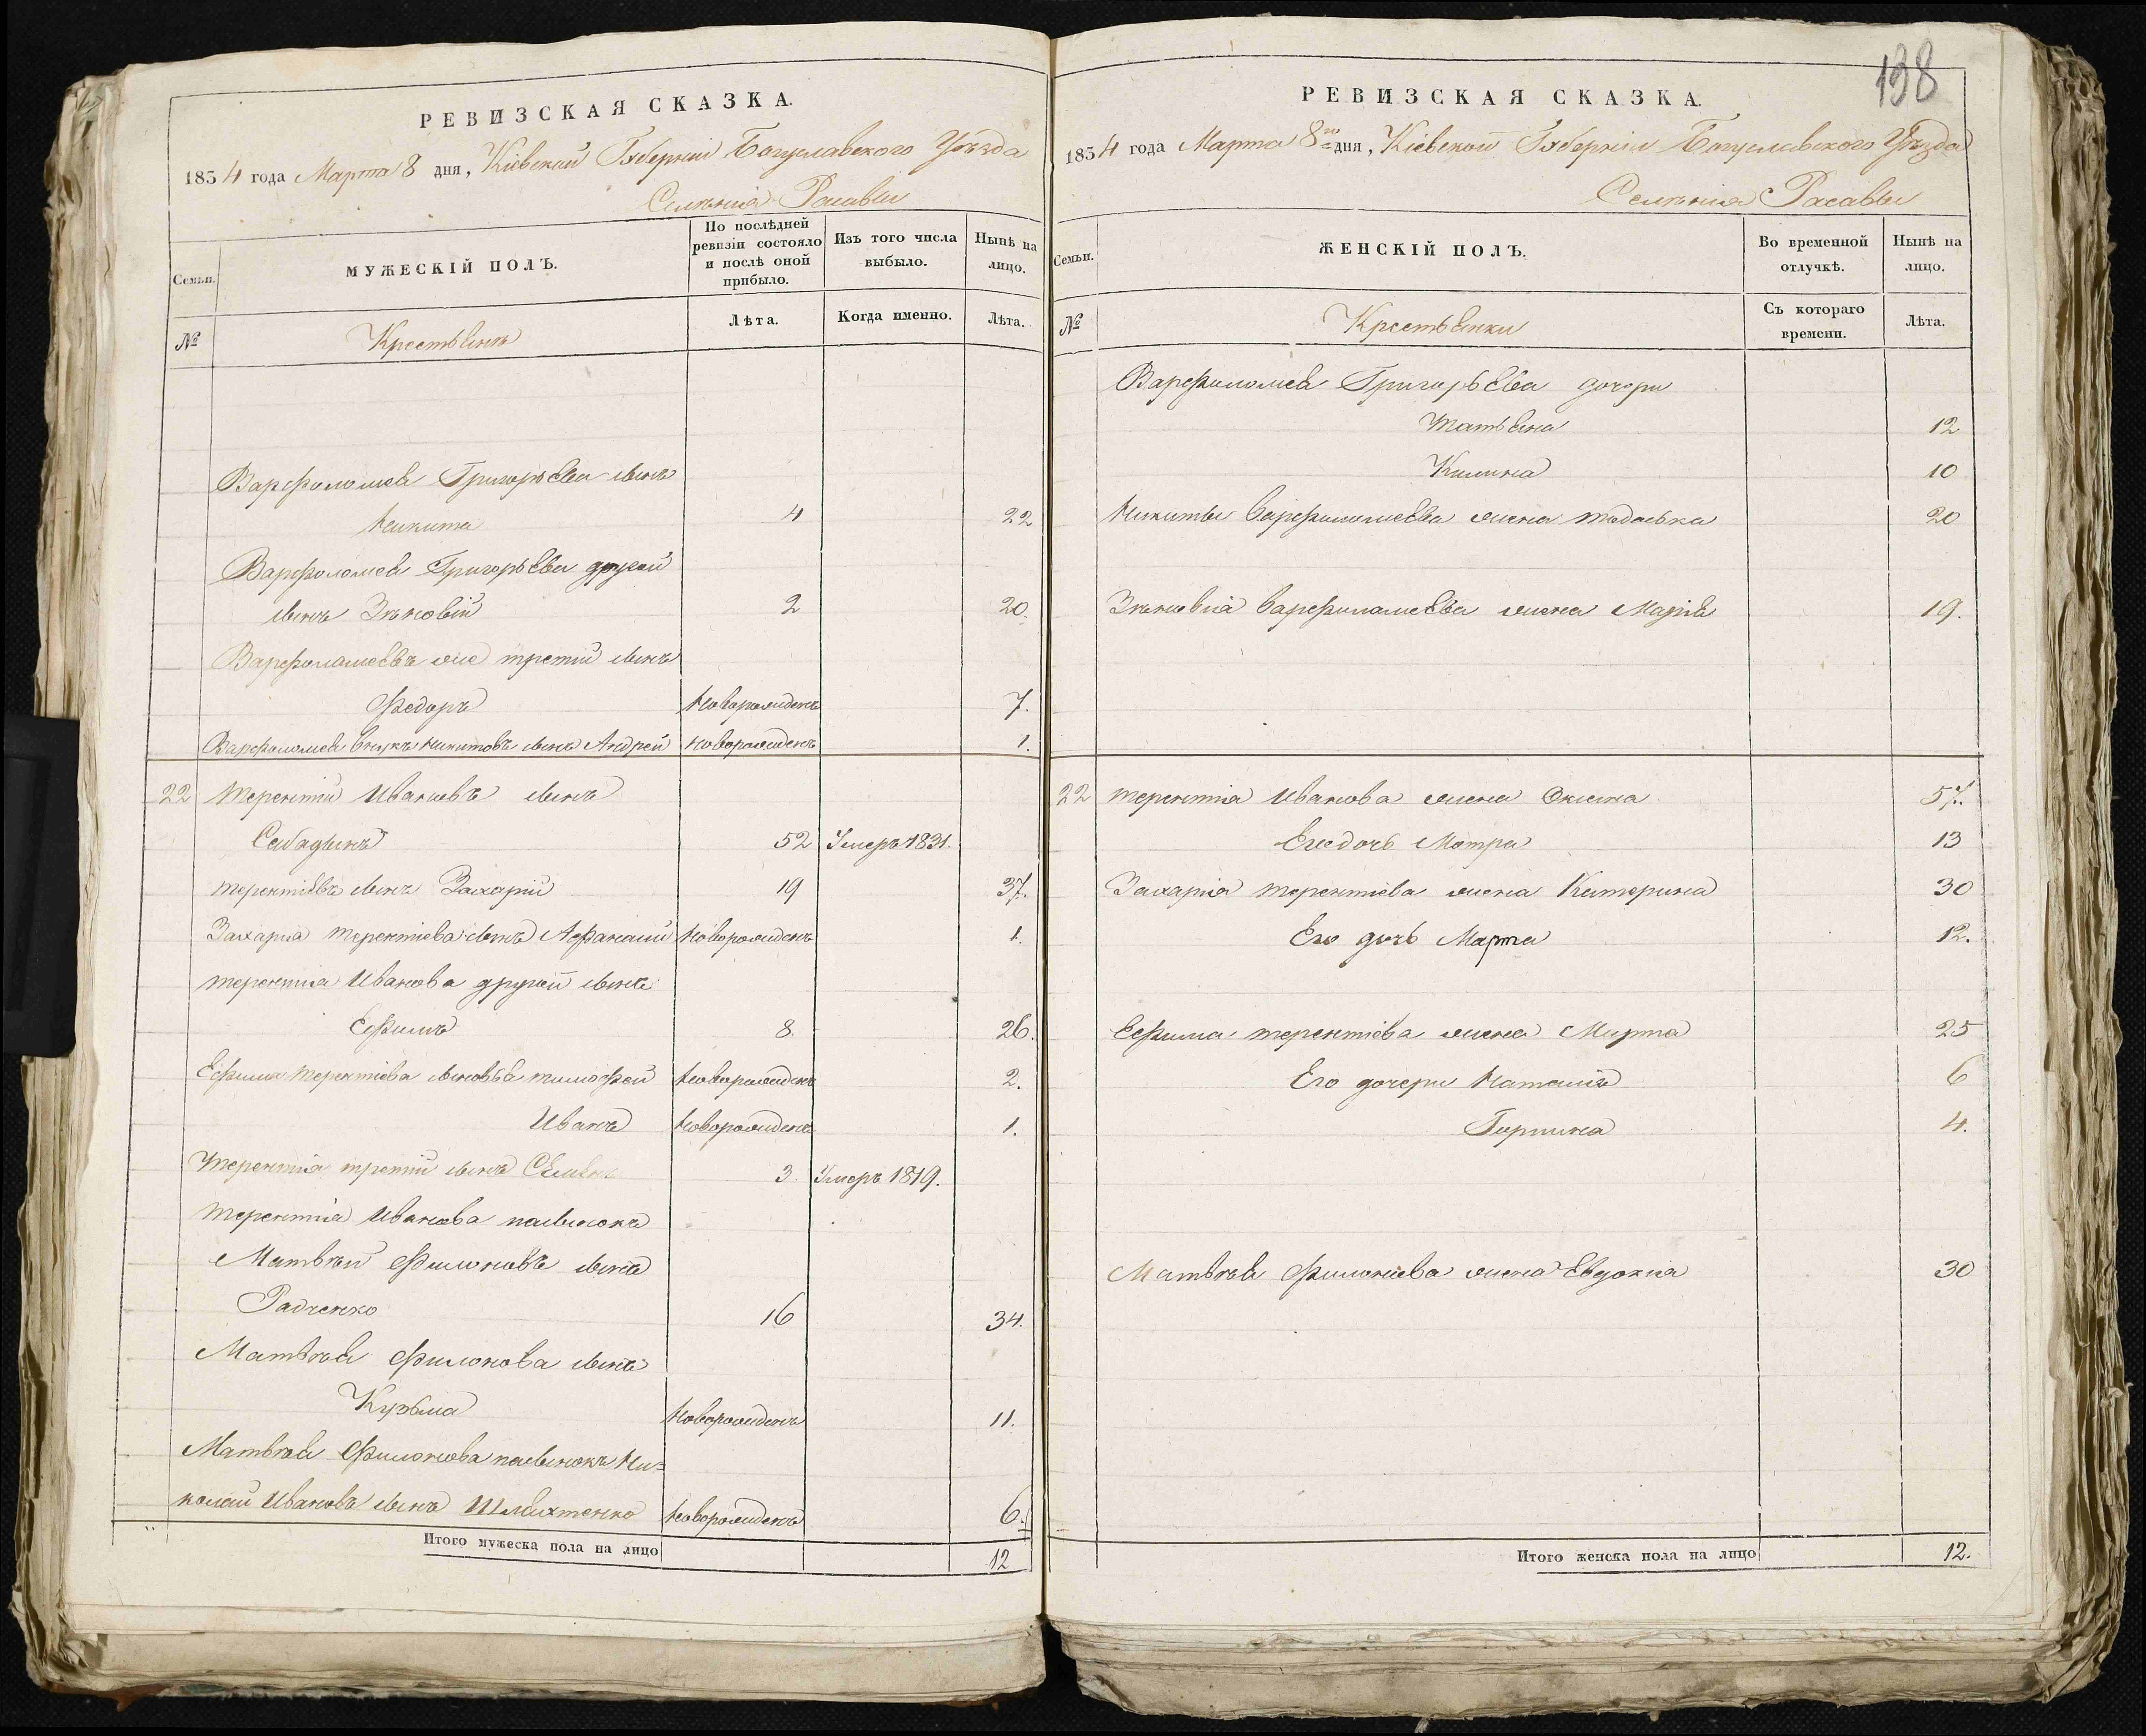 138
РЕВИЗСКАЯ СКАЗКА.
1834 года Марта 8 дня, Кіевской Губерніи Богуславского Уѣзда
Селенія Расавы
Семьи.
МУЖЕСКІЙ ПОЛЪ.
По послѣдней ревизіи состояло и послѣ оной прибыло.
Изъ того числа выбыло.
Нынѣ на лицо.
№
Крестьянъ
Лѣта.
Когда именно.
Лѣта.
Варфоломея Григорьева сынъ
Никита 4 22
Варфоломея Григорьева другой
сынъ Зѣновій 2 20.
Варфоломеевъ же третій сынъ
Федоръ Новорожденъ 7.
Варфоломея внукъ Никитовъ сынъ Андрей новорожденъ 1.
22 Терентій Ивановъ сынъ
Сабадынъ 52 Умеръ 1831.
Терентіевъ сынъ Захарій 19 37.
Захарія Терентіева сынъ Афанасий Новорожденъ 1.
Терентія Иванова другой сынъ
Ефимъ 8. 26.
Ефима Терентіева сыновья Тимофей Новорожденъ 2.
Иванъ Новорожденъ 1.
Терентія третій сынъ 3. Умеръ 1819.
Терентія Иванова пасынокъ
Матвѣй Филоновъ сынъ
Радченко 16 34.
Матвѣя Филонова сынъ
Кузьма Новорожденъ 11.
Матвѣя Филонова пасынокъ Ни=
колай Ивановъ сынъ Шляхтенко Новорожденъ 6.
Итого мужеска пола на лицо 12
РЕВИЗСКАЯ СКАЗКА.
1834 года Марта 8го дня, Кіевской Губерніи Богуславского Уѣзда
Селенія Расавы
Семьи.
ЖЕНСКІЙ ПОЛЪ.
Во временной отлучкѣ.
Нынѣ на лицо.
№
Крестьянки
Съ котораго времени.
Лѣта.
Варфоломея Григорьева дочери
Татьяна 12
Килина 10
Никиты Варфоломеева жена Тодоська 20
Зѣновія Варфоломеева жена Марія 19.
22 Терентія Иванова жена Оксена 57.
Его дочь Мотра 13
Захарія Терентіева жена Катерина 30
Его дочь Марта 12.
Ефима Терентіева жена Марта 25
Его дочери Наталія 6
Горпина 4.
Матвѣя Филонова жена Евдокіа 30
Итого женска пола на лицо 12.